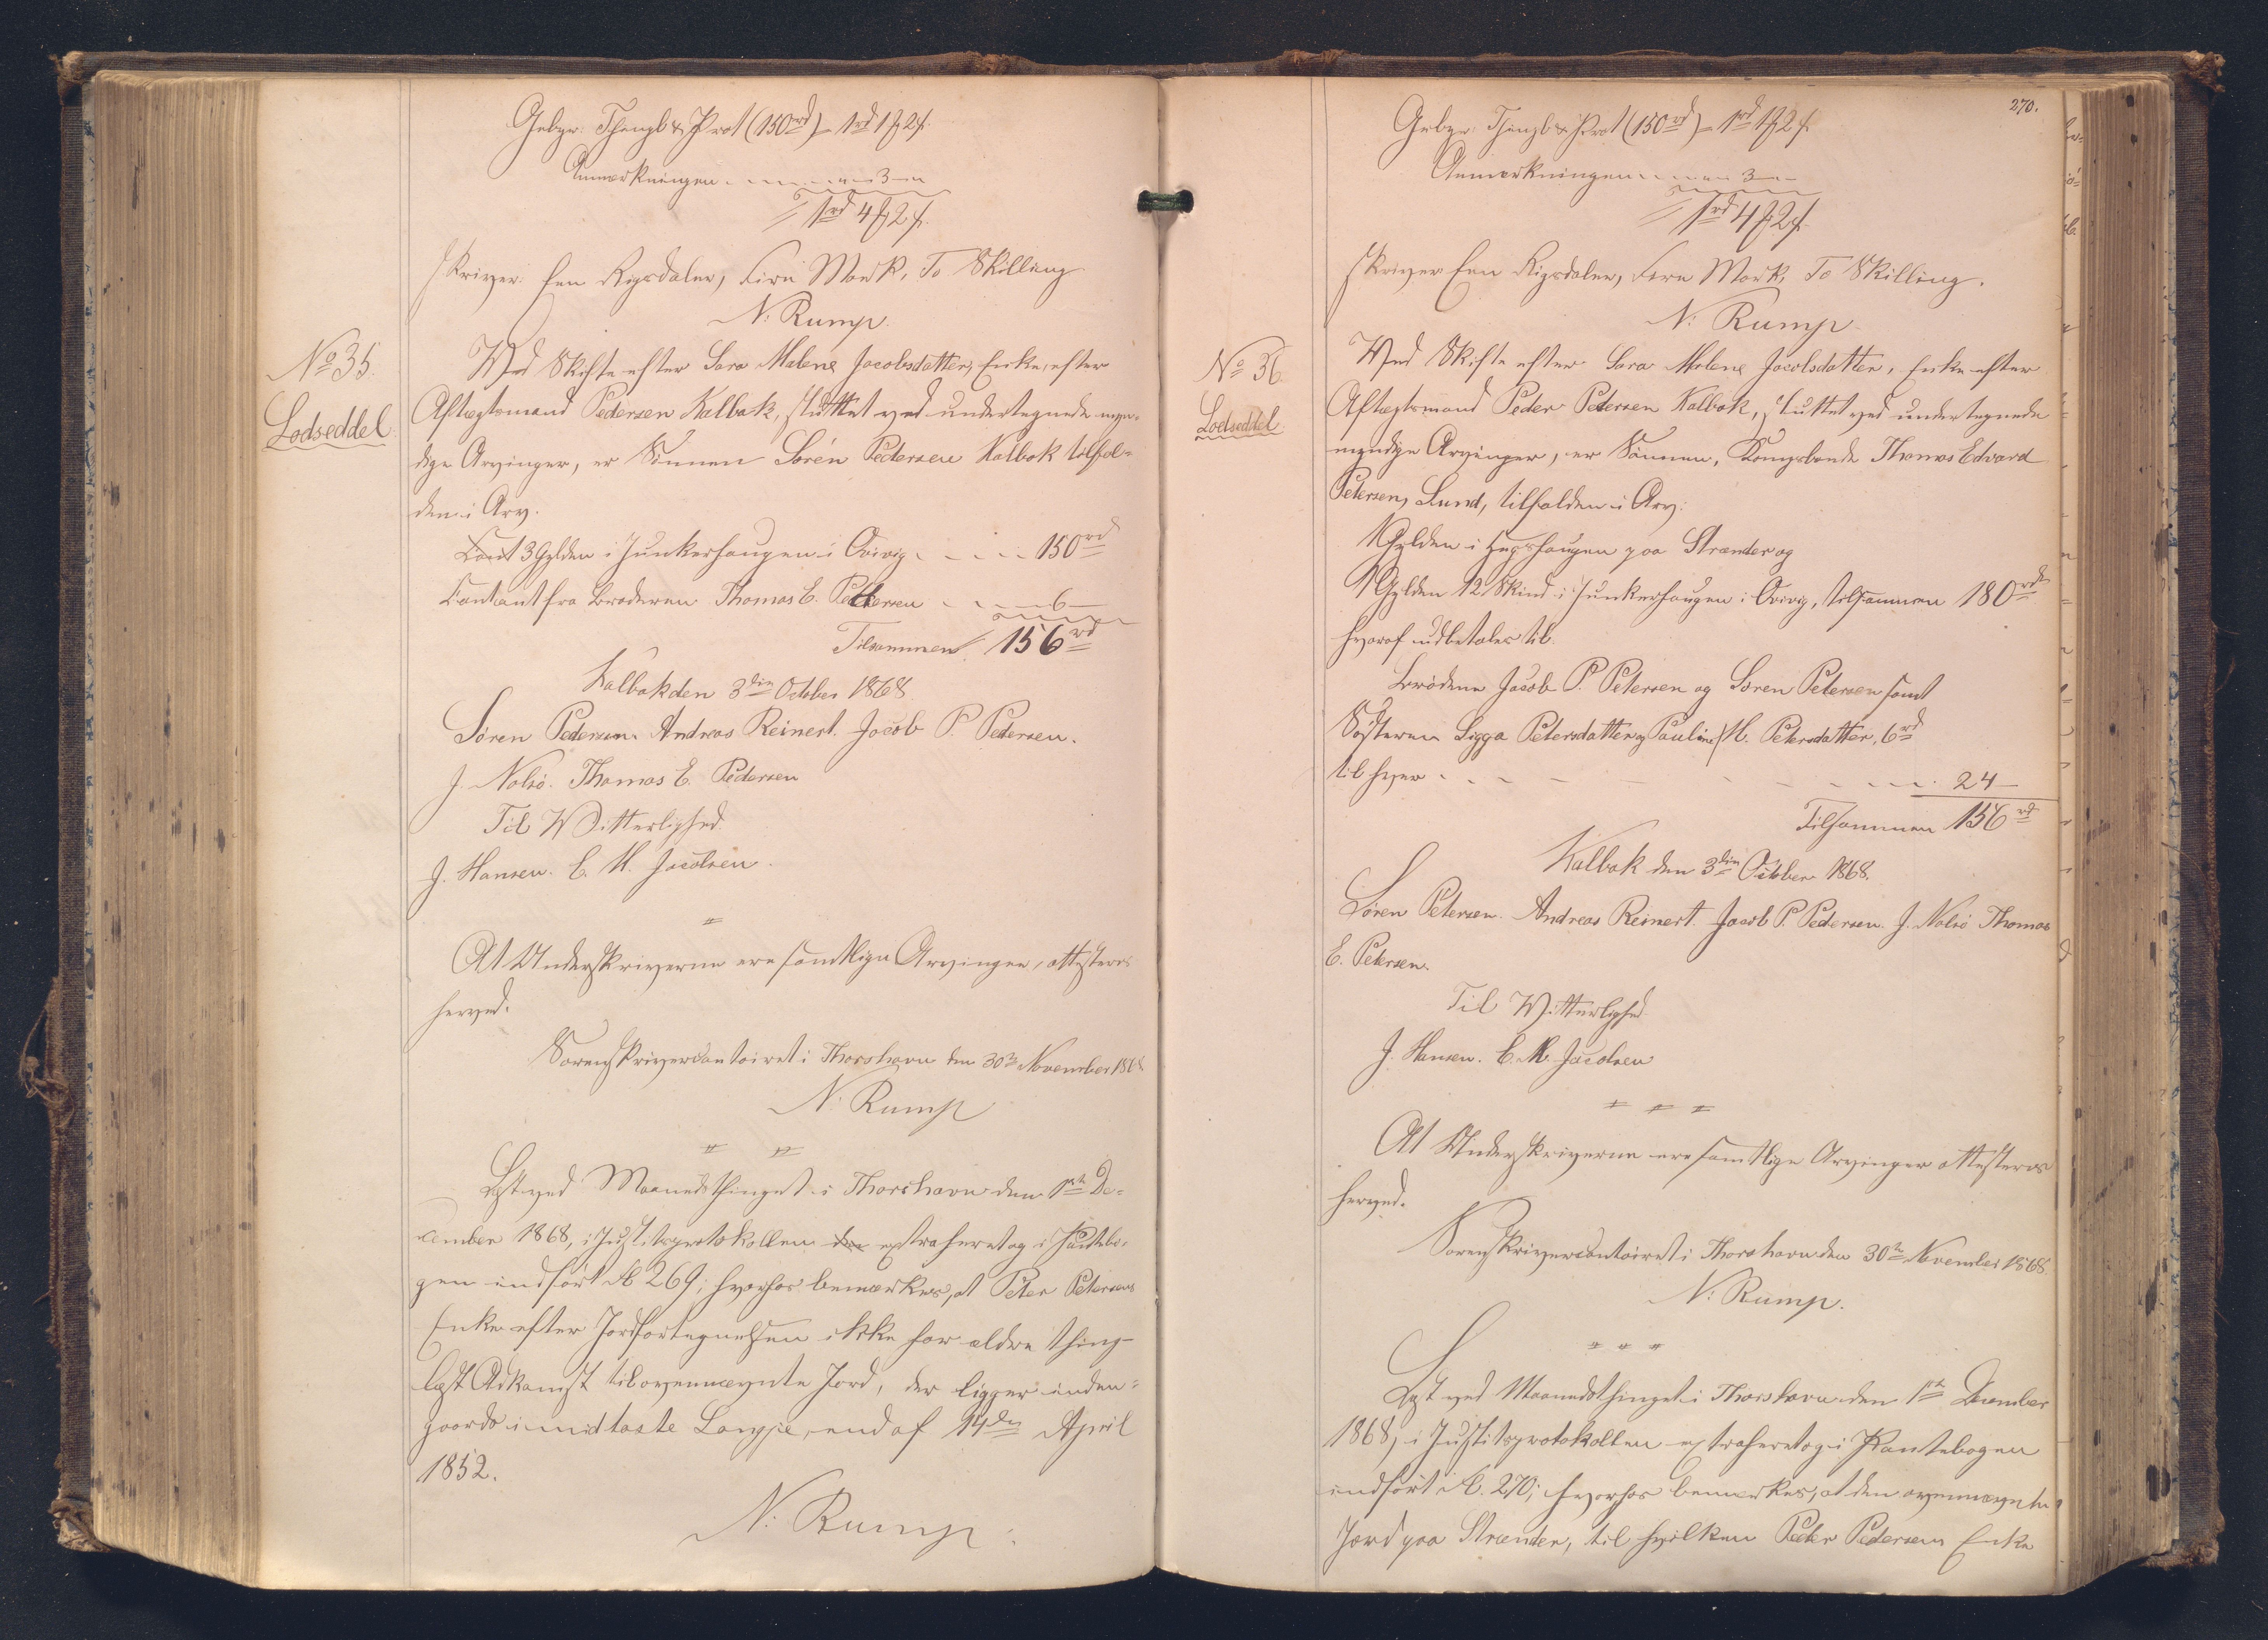 Gebyr: Thingl & Prot (150rd) = 1rd 1 ℔ 2 ſ.
Anmærkningen 3
1rd 4 ℔ 2 ſ.
skriver Een Rigsdaler, Fire Mark, To Skilling
N: Rump.
No 35.
Lodseddel
Ved Skifte efter Sara Malene Jacobsdatter, Enke efter
Aftægtsmand Pedersen Kalbak, sluttet ved undertegnede myn-
dige Arvinger, er Sønnen Søren Pedersen Kalbak tilfal-
den i Arv.
3 Gylden i Junkerhaugen i Ovivig 150rd
Contant fra Broderen Thomas E. Pettersen 6
Tilsammen 156rd
Kalbak den 3die October 1868
Søren Pedersen. Andreas Reinert. Jacob P. Petersen.
J. Nolsø. Thomas E. Pedersen
Til Vitterlighed
J. Hansen. E. M. Jacobsen.
At Underskriverne ere samtlige Arvinger, attesteres
herved.
Sorenskrivercontoiret i Thorshavn den 30te November 1868
N: Rump
Læst ved Maanedsthinget i Thorshavn den 1ste De-
cember 1868, i Justitsprotokollen extraheret og i Pantebo-
gen indført A 269; hvorhos bemærkes, at Peter Petersens
Enke efter Jordfortegnelsen ikke har ældre thing-
læst Adkomst til ovennævnte Jord, der ligger inden-
gaards i midtaste Langje, end af 14de April
1852.
N: Rump.
270.
Gebyr: Thingl & Prot (150rd) = 1rd 1 ℔ 2 ſ.
Anmærkningen 3
1rd 4 ℔ 2 ſ.
skriver Een Rigsdaler, Fire Mark, To Skilling.
N: Rump
No 36.
Lodseddel
Ved Skifte efter Sara Malene Jacobsdatter, Enke efter
Aftægtsmand Peder Petersen Kalbak, sluttet ved undertegnede
myndige Arvinger, er Sønnen, Kongsbonde Thomas Edvard
Petersen, Lund, tilfalden i Arv:
1 Gylden i paa Strænder og
1 Gylden 12 Skind i Junkerhaugen i Ovivig, tilsammen 180rd
hvoraf udbetales til
Brødrene Jacob P. Petersen og Søren Petersen samt
Søstrene Sigga Petersdatter og Pauline M. Petersdatter, 6rd
til hver 24
Tilsammen 156rd
Kalbak den 3die October 1868.
Søren Petersen. Andreas Reinert. Jacob P. Pedersen. J. Nolsø Thomas
E. Petersen.
Til Vitterlighed
J. Hansen. E. M. Jacobsen
At Underskriverne ere samtlige Arvinger attesteres
herved.
Sorenskrivercontoiret i Thorshavn den 30te November 1868
N: Rump.
Læst ved Maanedsthinget i Thorshavn den 1ste December
1868, i Justitsprotokollen extraheret og i Pantebogen
indført A. 270; hvorhos bemærkes, at den ovennævnte
Jord paa Strænder, til hvilken Peder Pedersens Enke